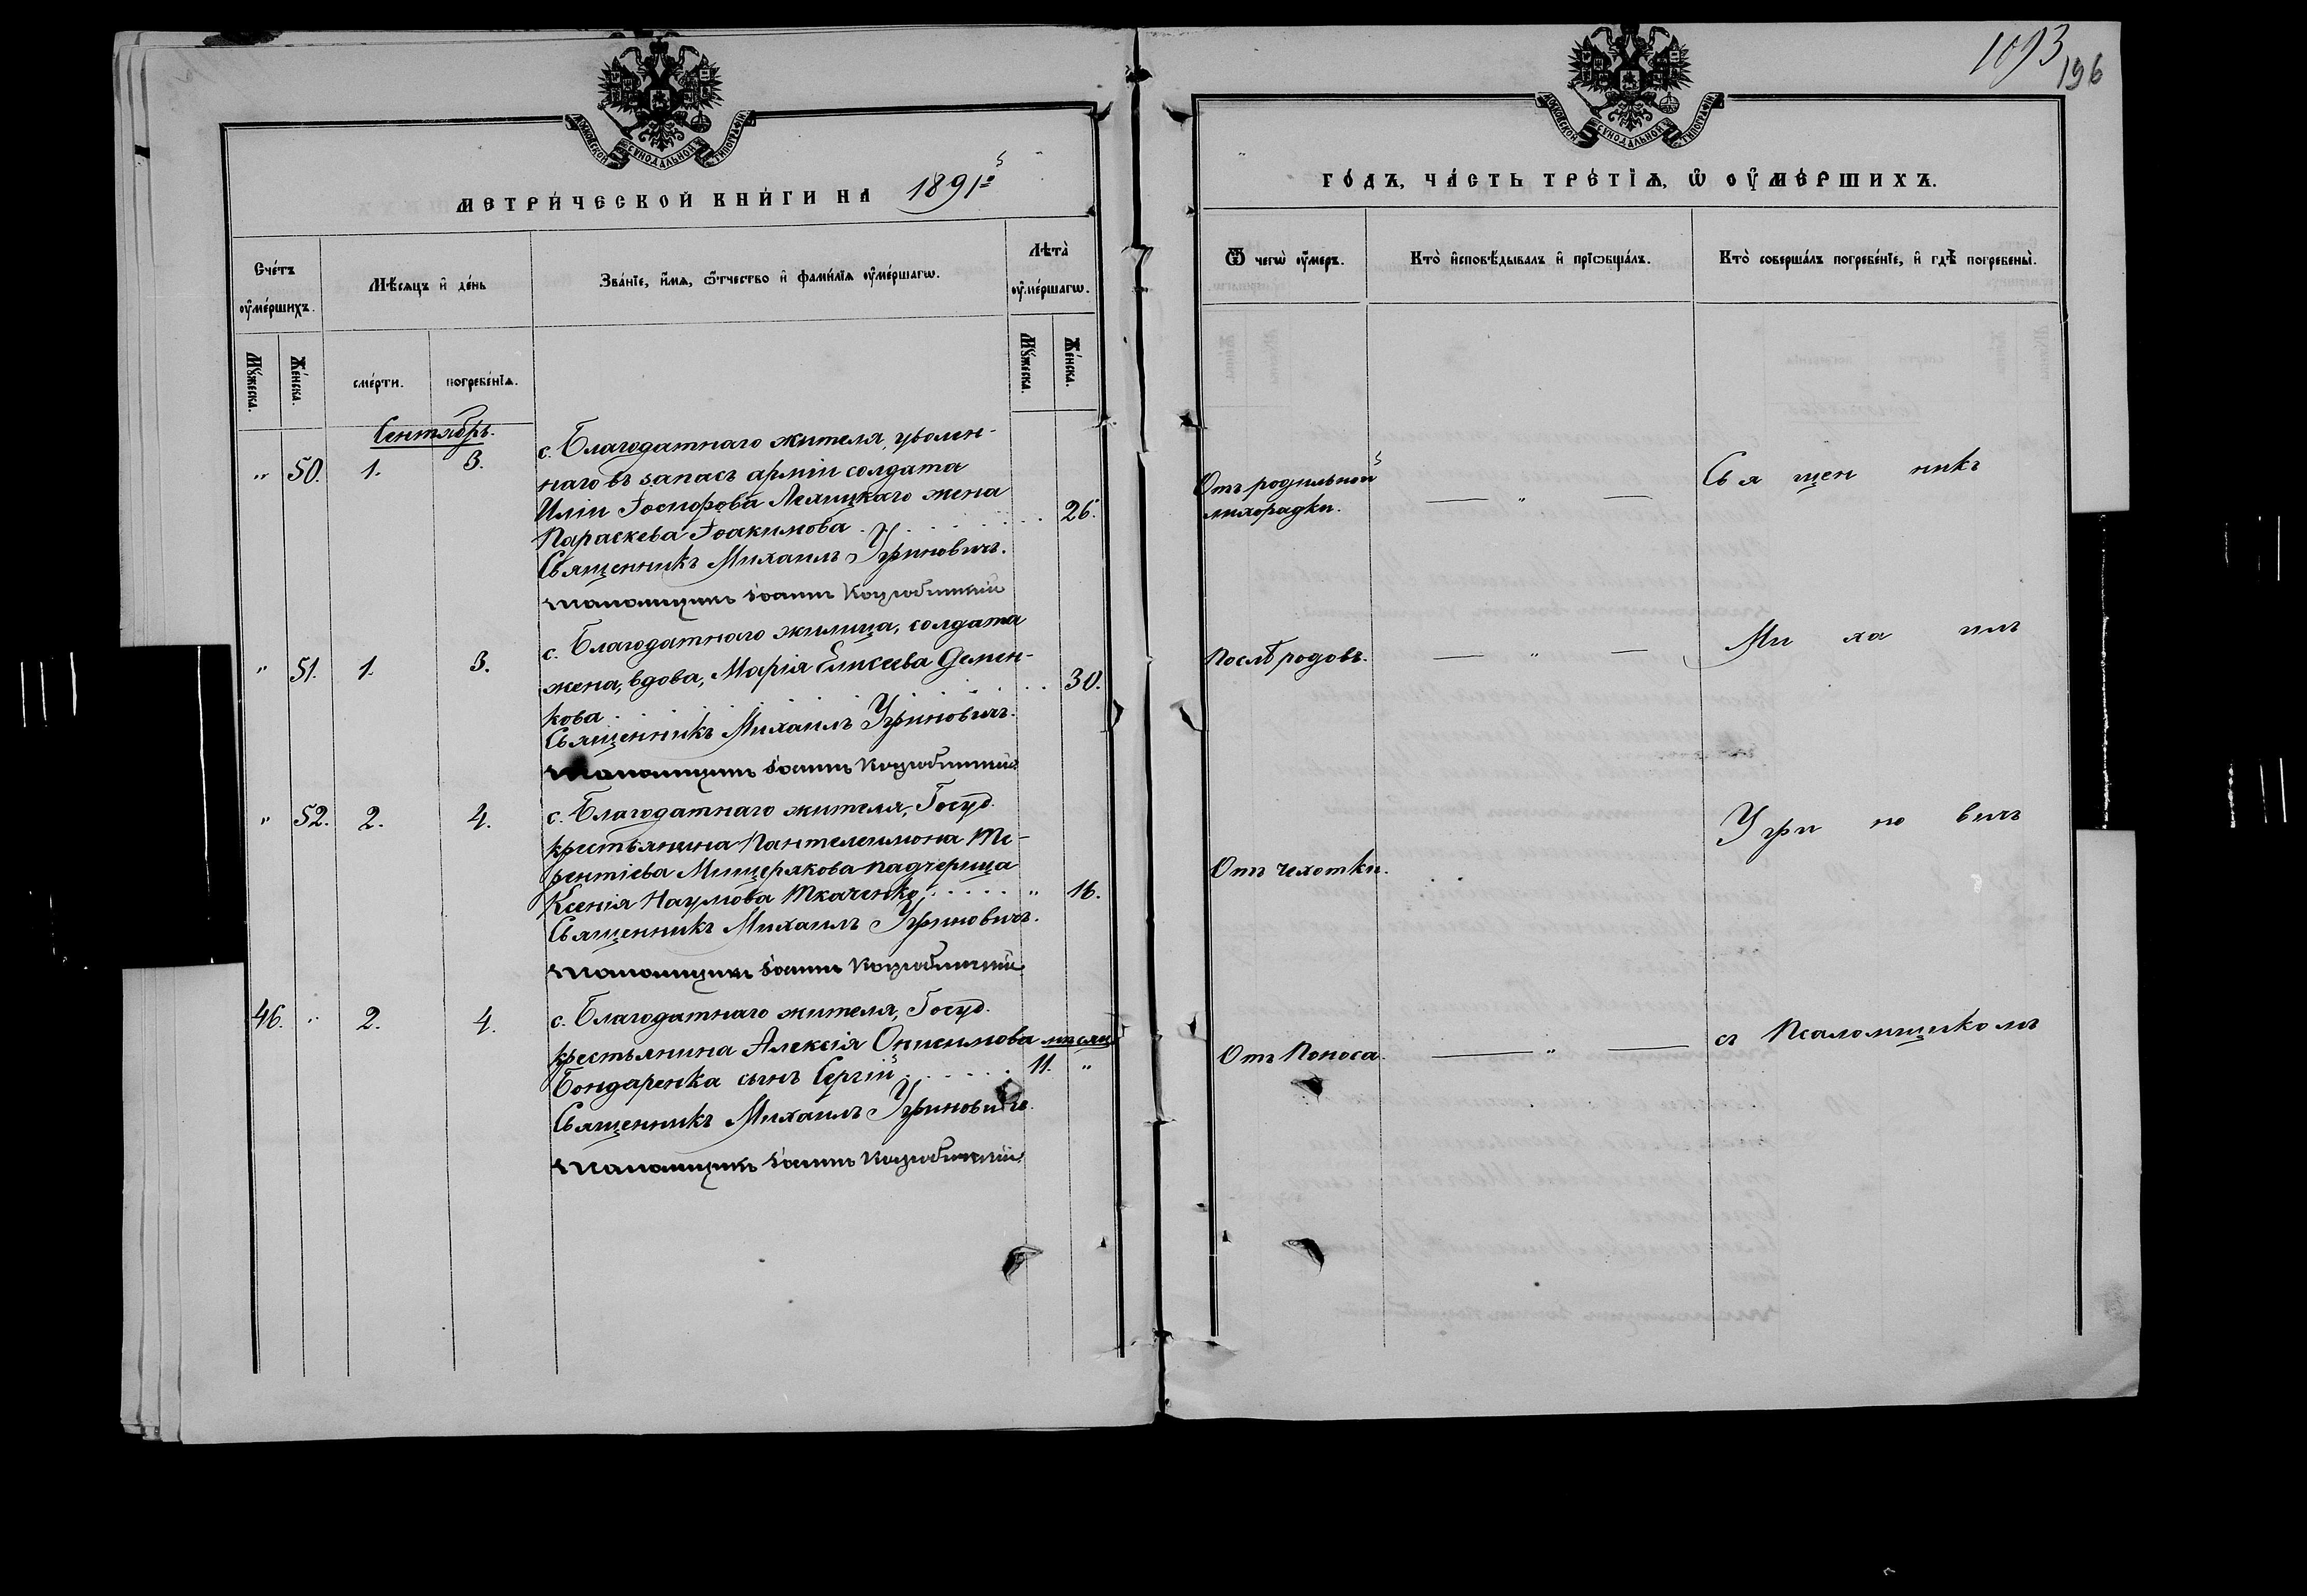 1093
196
МОСКОВСКОЙ СѴНОДАЛЬНОЙ ТИПОГРАФІИ
МОСКОВСКОЙ СѴНОДАЛЬНОЙ ТИПОГРАФІИ
МЕТРИ́ЧЕСКОЙ КНИ́ГИ НА 1891й
ГО́ДЪ, ЧА́СТЬ ТРЕ́ТІѦ, Ѡ҆ ОУ҆МЕ́РШИХЪ.
Сче́тъ оу҆ме́ршихъ.
Мѣ́сѧцъ и҆ де́нь
Зва́нїе, и҆́мѧ, ѻ҆́тчество и҆ фами́лїѧ оу҆ме́ршагѡ.
Лѣта̀ оу҆ме́ршагѡ.
Ѿ чегѡ̀ оу҆́меръ.
Кто̀ и҆сповѣ́дывалъ и҆ прїѡбща́лъ.
Кто̀ соверша́лъ погребе́нїе, и҆ гдѣ̀ погребены̀.
Мꙋ́жеска.
Же́нска.
сме́рти.
погребе́нїѧ.
Мꙋ́жеска.
Же́нска.
Сентябрь.
" 50. 1. 3.
с. Благодатнаго жителя, уволен-
наго въ запасъ арміи солдата
Иліи Іосифова Лехицкаго жена
Параскева Іоакимова . . . . . . 26.
Священникъ Михаилъ Угриновичъ.
Псаломщикъ Іоаннъ Коцюбинскій
Отъ родильной
лихорадки.
— " —
Священникъ
" 51. 1. 3.
с. Благодатнаго жилица, солдата
жена, вдова, Марія Елисеева Демен-
кова . . . . . . . 30.
Священникъ Михаилъ Угриновичъ.
Псаломщикъ Іоаннъ Коцюбинскій
Послѣ родовъ.
— " —
Михаилъ
" 52. 2. 4.
с. Благодатнаго жителя, Госуд.
крестьянина Пантелеимона Те-
рентіева Мищерякова падчерица
Ксенія Наумова Ткаченко . . . . . " 16.
Священникъ Михаилъ Угриновичъ.
Псаломщикъ Іоаннъ Коцюбинскій
Отъ чехотки.
Угриновичъ
46. " 2. 4.
с. Благодатнаго жителя, Госуд.
крестьянина Алексія Онисимова мѣсяц.
Бондаренка сынъ Сергій . . . . . . 11. "
Священникъ Михаилъ Угриновичъ.
Псаломщикъ Іоаннъ Коцюбинскій
Отъ Поноса.
— " —
съ Псаломщикомъ